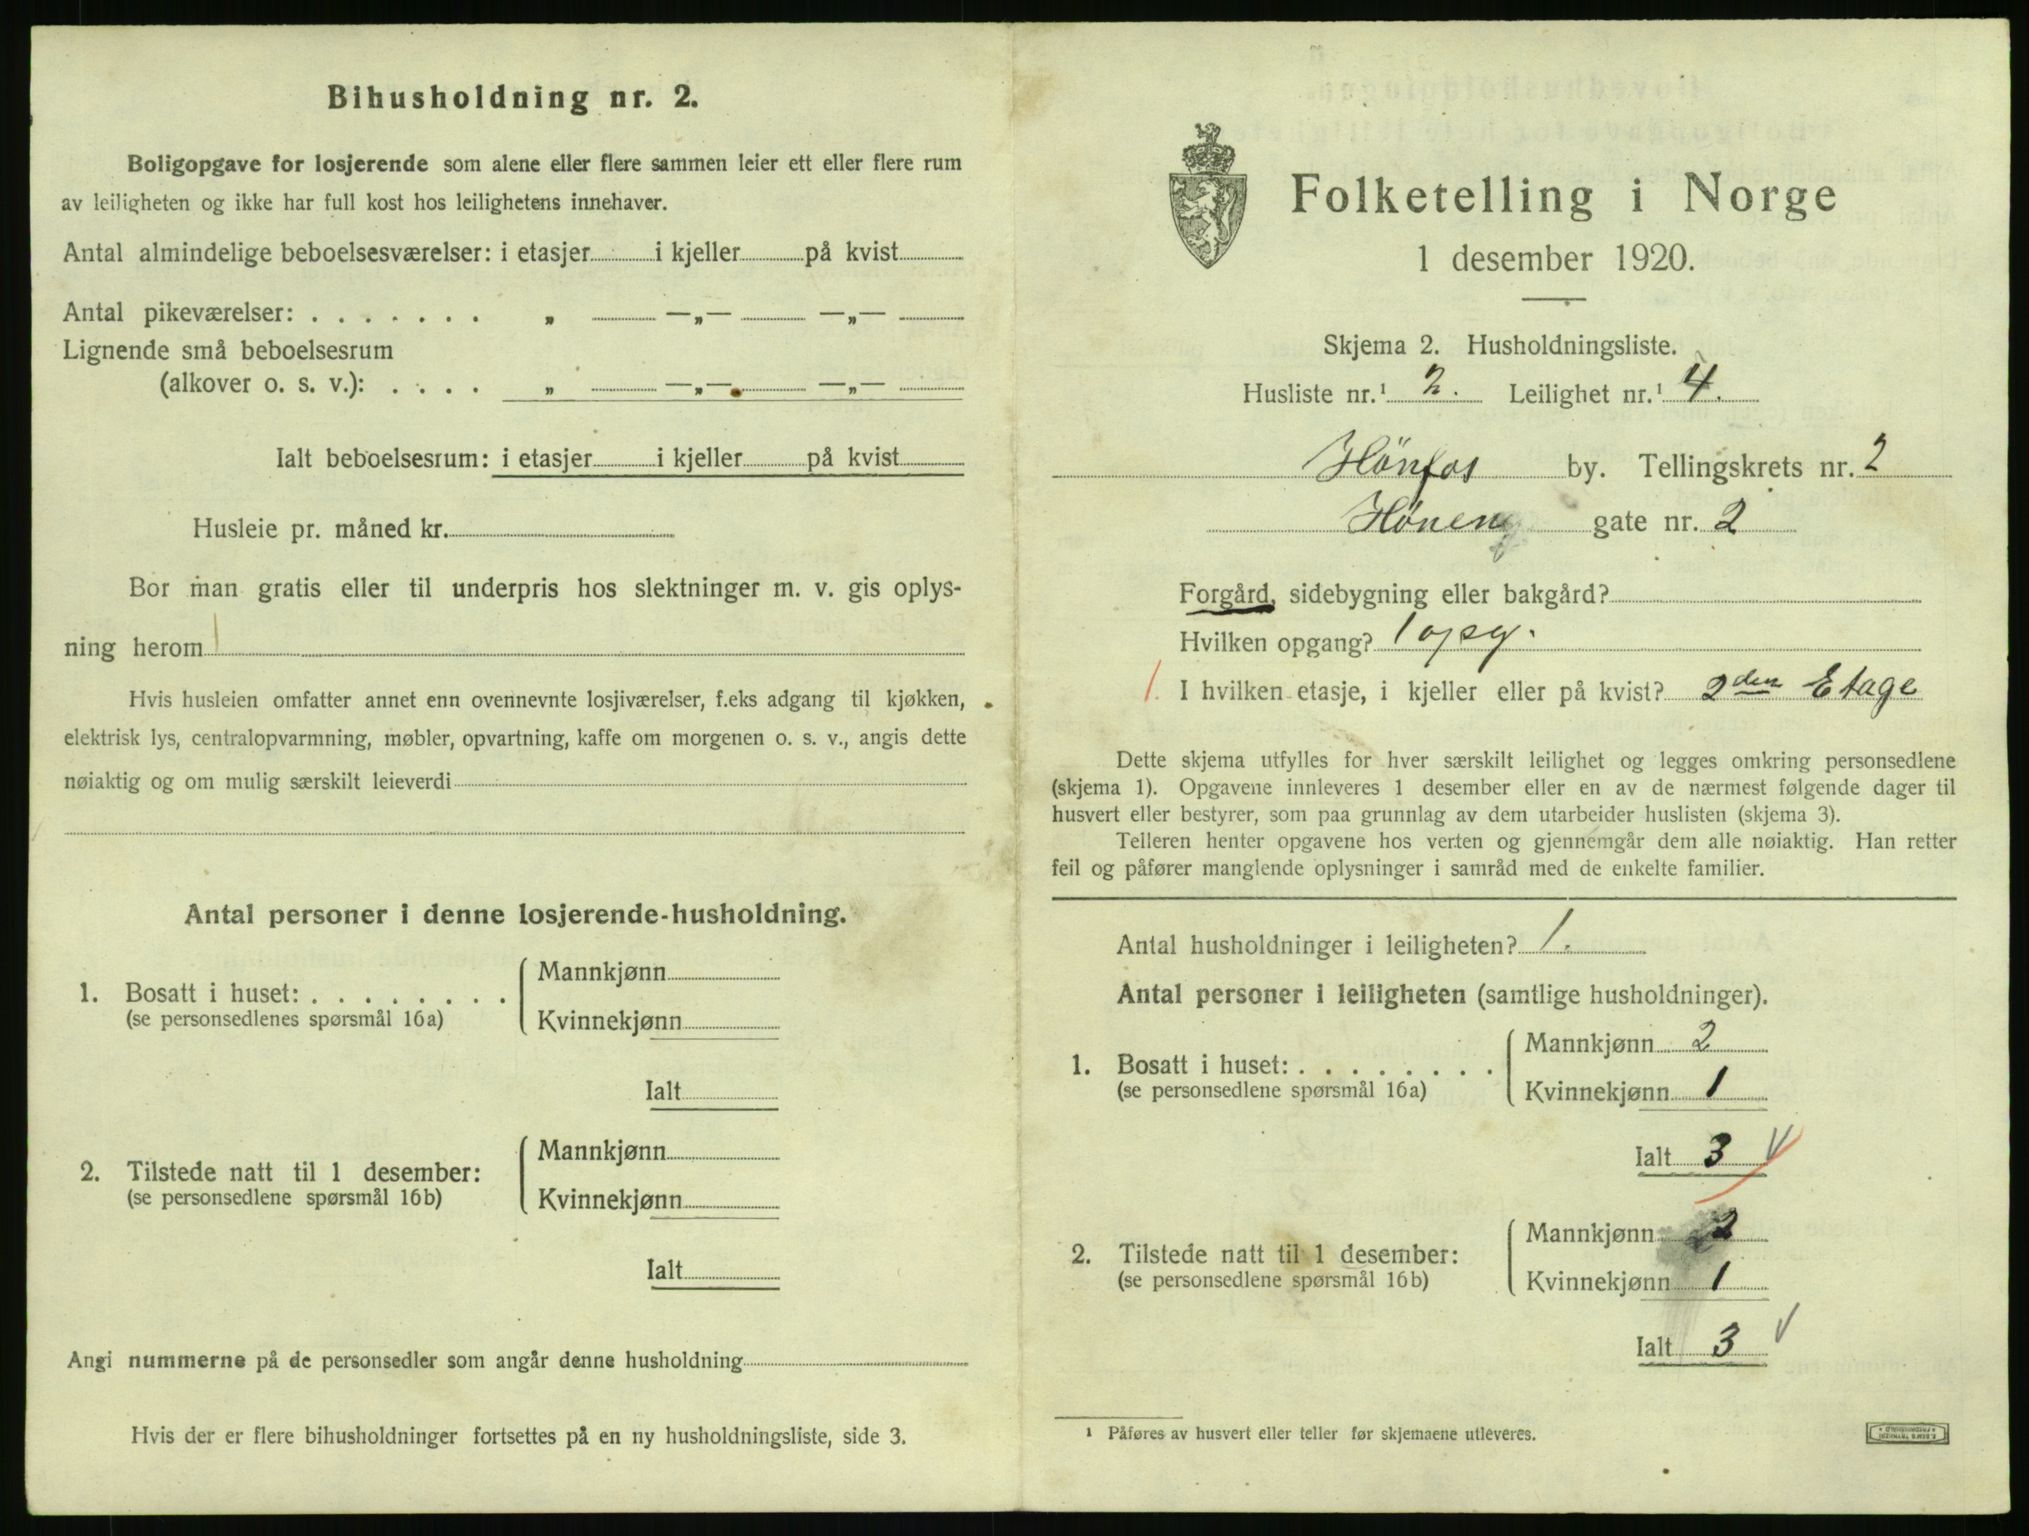 Bihusholdning nr. 2.
Boligopgave for losjerende som alene eller flere sammen leier ett eller flere rum
av leiligheten og ikke har full kost hos leilighetens innehaver.
Antal almindelige beboelsesværelser: i etasjer i kjeller på kvist
Antal pikeværelser: . . . . . . . „ —„— —„—
Lignende små beboelsesrum
(alkover o. s. v.): . . . . „ —„— —„—
Ialt beboelsesrum: i etasjer i kjeller på kvist
Husleie pr. måned kr.
Bor man gratis eller til underpris hos slektninger m. v. gis oplys-
ning herom
Hvis husleien omfatter annet enn ovennevnte losjiværelser, f.eks adgang til kjøkken,
elektrisk lys, centralopvarmning, møbler, opvartning, kaffe om morgenen o. s. v., angis dette
nøiaktig og om mulig særskilt leieverdi
Antal personer i denne losjerende-husholdning.
1. Bosatt i huset: . . . . . . . .
(se personsedlenes spørsmål 16a)
Mannkjønn
Kvinnekjønn
Ialt
2. Tilstede natt til 1 desember:
(se personsedlene spørsmål 16b)
Mannkjønn
Kvinnekjønn
Ialt
Angi nummerne på de personsedler som angår denne husholdning
Hvis der er flere bihusholdninger fortsettes på en ny husholdningsliste, side 3.
Folketelling i Norge
1 desember 1920.
Skjema 2. Husholdningsliste.
Husliste nr.¹ 2. Leilighet nr.¹ 4.
Hönfos by. Tellingskrets nr. 2
Høneng gate nr. 2
Forgård, sidebygning eller bakgård?
Hvilken opgang? 1 opg.
1. I hvilken etasje, i kjeller eller på kvist? 2den Etage
Dette skjema utfylles for hver særskilt leilighet og legges omkring personsedlene
(skjema 1). Opgavene innleveres 1 desember eller en av de nærmest følgende dager til
husvert eller bestyrer, som paa grunnlag av dem utarbeider huslisten (skjema 3).
Telleren henter opgavene hos verten og gjennemgår dem alle nøiaktig. Han retter
feil og påfører manglende oplysninger i samråd med de enkelte familier.
Antal husholdninger i leiligheten? 1.
Antal personer i leiligheten (samtlige husholdninger).
1. Bosatt i huset: . . . . . . . .
(se personsedlene spørsmål 16a)
Mannkjønn 2
Kvinnekjønn 1
Ialt 3
2. Tilstede natt til 1 desember:
(se personsedlene spørsmål 16b)
Mannkjønn 2
Kvinnekjønn 1
Ialt 3
¹ Påføres av husvert eller teller før skjemaene utleveres.